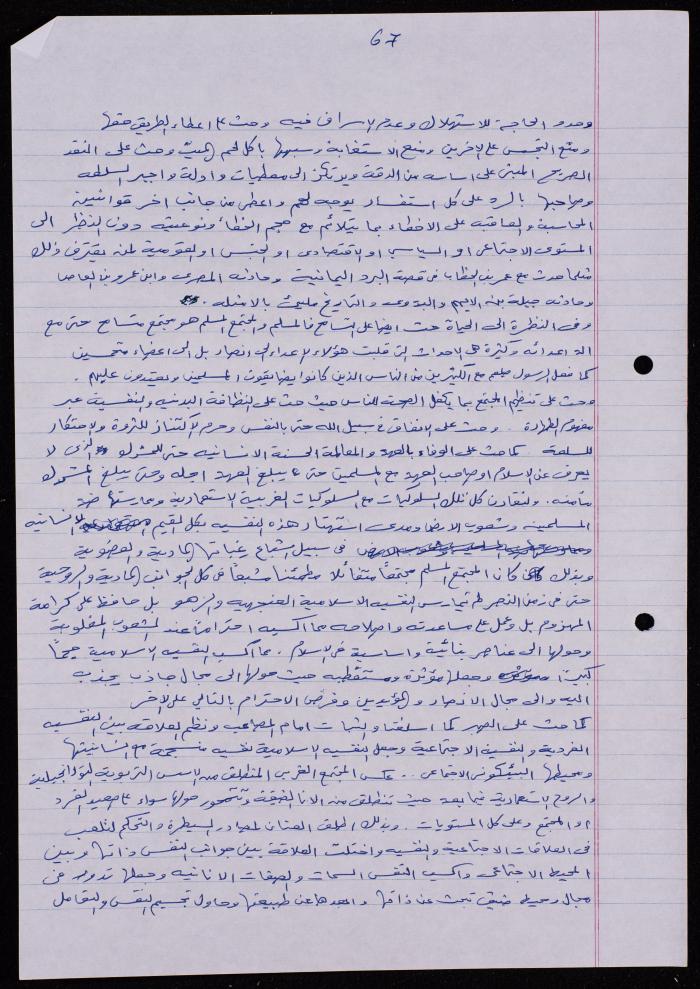 67
وحدد الحاجة للاستهلاك وعدم الاسراف فيه وحث على اعطاء الطريق حقها
ومنع التجسس على الاخرين ومنع الاستغابة وسبهها بأكل لحم الميت وحث على النقد
الصريح المبني على اساس من الدقة ويرتكز الى معطيات وادلة واجبر السلطة
وصاحبها بالرد على كل استفسار يوجه لهم واعطى من جانب اخر قوانين
المحاسبة والمعاقبة على الاخطاء بما يتلائم مع حجم الخطأ ونوعيته دون النظر الى
المستوى الاجتماعي او السياسي او الاقتصادي او الجنس او القومية لمن يقترف ذلك
مثلما حدث مع عمر بن الخطاب في قصة البرد اليمانية وحادثة المصري وابن عمرو بن العاص
وحادثة جبلة بن الايهم والبدوي والتاريخ مليئ بالامثلة .
وفي النظرة الى الحياة حث ايضا على التسامح فالمسلم والمجتمع المسلم هو مجتمع متسامح حتى مع
الد اعدائه وكثيرة هي الاحداث التي قلبت هؤلاء الاعداء الى انصار بل الى اعضاء متحمسين
كما فعل الرسول صلعم مع الكثيرين من الناس الذين كانوا يضايقون المسلمين ويعتدون عليهم .
وحث على تنظيم المجتمع بما يكفل الصحة للناس حيث حث على النظافة البدنية والنفسية عبر
مفهوم الطهارة . وحث على الانفاق في سبيل الله حتى بالنفس وحرم الاكتناز للثروة والاحتكار
للسلعة . كما حث على الوفاء بالعهد والمعاملة الحسنة الانسانية حتى للمشرك الذي لا
يعرف عن الاسلام او صاحب العهد مع المسلمين حتى يبلغ العهد اجله وحتى يبلغ المشرك
مأمنه . ولنقارن كل تلك السلوكيات مع السلوكيات الغربية الاستعمارية وممارستها ضد
المسلمين وشعوب الارض ومدى استهتار هذه النفسية بكل القيم الانسانية
في سبيل اشباع رغباتها المادية والعضوية
وبذلك كان المجتمع المسلم مجتمعاً متفائلا مطمئنا مشبعاً في كل الجوانب المادية والروحية
حتى في زمن النصر لم تمارس النفسية الاسلامية العنجهية والزهو بل حافظ على كرامة
المهزوم بل وعمل على مساعدته واصلاحه مما اكسبه احتراماً عند الشعوب المغلوبة
وحولها الى عناصر بنائية واساسية في الاسلام . مما اكسب النفسية الاسلامية حجماً
كبيراً وجعلها مؤثرة ومستقطبة حيث حولها الى مجال جاذب يجذب
اليه والى مجال الانصار والمؤيدين وفرض الاحترام بالتالي على الاخر
كما حث على الصبر كما اسلفنا والثبات امام المصاعب ونظم العلاقة بين النفسية
الفردية والنفسية الاجتماعية وجعل النفسية الاسلامية نفسية منسجمة مع انسانيتها
ومحيطها البيئي الاجتماعي .. عكس المجتمع الغربي المنطلق من الاسس التربوية
والروح الاستعمارية فيما بعد حيث تنطلق من الانا الضيقة وتتمحور حولها سواء على صعيد الفرد
او المجتمع وعلى كل المستويات . وبذلك اطلق العنان لمصادر السيطرة والتحكم لتلعب
في العلاقات الاجتماعية والنفسية واختلت العلاقة بين جوانب النفس ذاتها وبين
المحيط الاجتماعي واكسب النفس السمات والصفات الانانية وجعلها تدور في
مجال ومحيط ضيق تبحث عن ذاتها وابعدها عن طبيعتها وحاول تجسيم النفس والتعامل